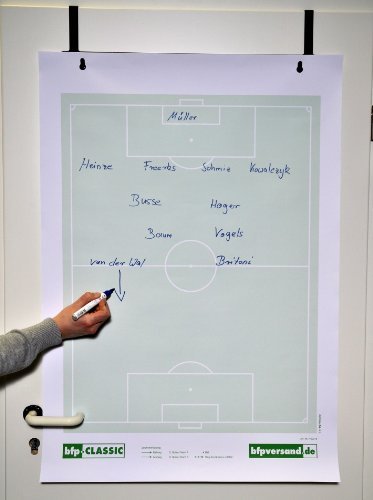 Müller
Heinze Freerks Schmie Kowalczyk
Busse Hager
Baum Vogels
van der Wal Britoni
bfp CLASSIC
bfpversand.de